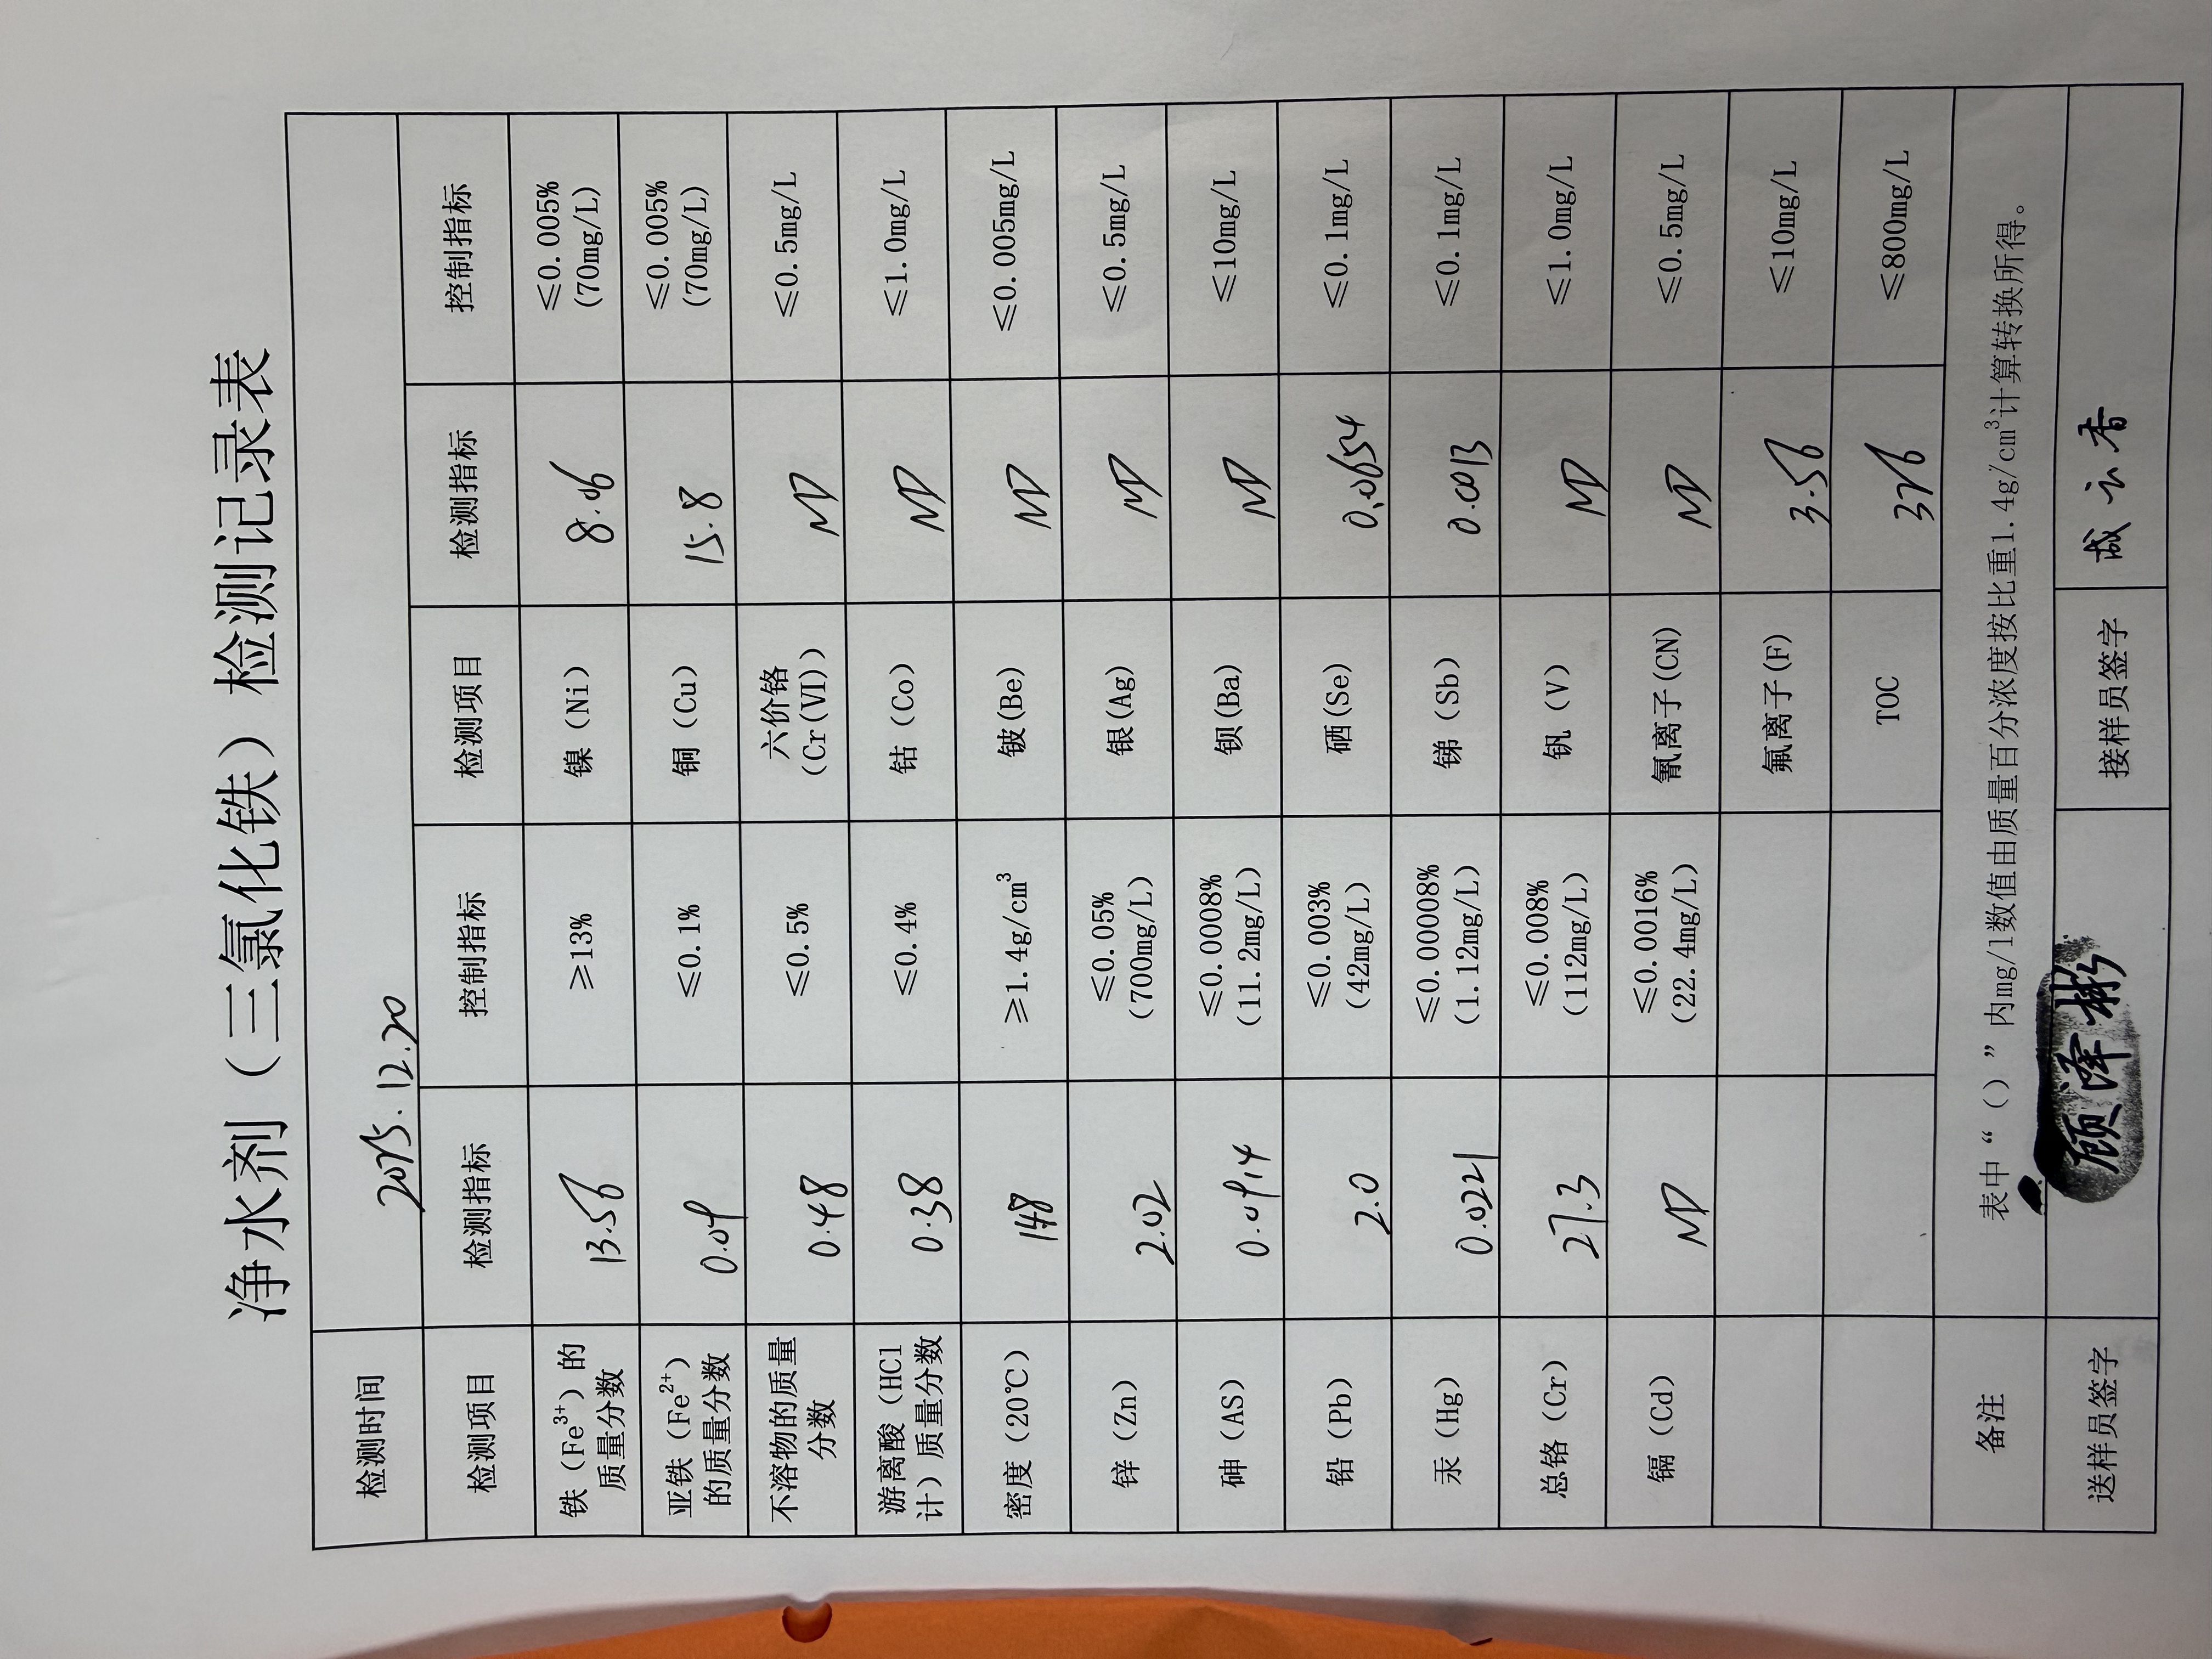 净水剂（三氯化铁）检测记录表
检测时间 2025.12.20
检测项目 检测指标 控制指标 检测项目 检测指标 控制指标
铁（Fe³⁺）的质量分数 13.56 ≥13% 镍（Ni） 8.06 ≤0.005%(70mg/L)
亚铁（Fe²⁺）的质量分数 0.09 ≤0.1% 铜（Cu） 15.8 ≤0.005%(70mg/L)
不溶物的质量分数 0.48 ≤0.5% 六价铬（Cr(VI)） ND ≤0.5mg/L
游离酸（HCl计）质量分数 0.38 ≤0.4% 钴（Co） ND ≤1.0mg/L
密度（20℃） 1.48 ≥1.4g/cm³ 铍(Be) ND ≤0.005mg/L
锌（Zn） 2.02 ≤0.05%(700mg/L) 银(Ag) ND ≤0.5mg/L
砷（AS） 0.0914 ≤0.0008%(11.2mg/L) 钡(Ba) ND ≤10mg/L
铅（Pb） 2.0 ≤0.003%(42mg/L) 硒(Se) 0.0654 ≤0.1mg/L
汞（Hg） 0.021 ≤0.00008%(1.12mg/L) 锑（Sb） 0.0013 ≤0.1mg/L
总铬（Cr） 27.3 ≤0.008%(112mg/L) 钒（V） ND ≤1.0mg/L
镉（Cd） ND ≤0.0016%(22.4mg/L) 氰离子(CN) ND ≤0.5mg/L
氟离子(F) 3.56 ≤10mg/L
TOC 376 ≤800mg/L
备注 表中“（）”内mg/l数值由质量百分浓度按比重1.4g/cm³计算转换所得。
送样员签字 顾泽彬 接样员签字 臧云香